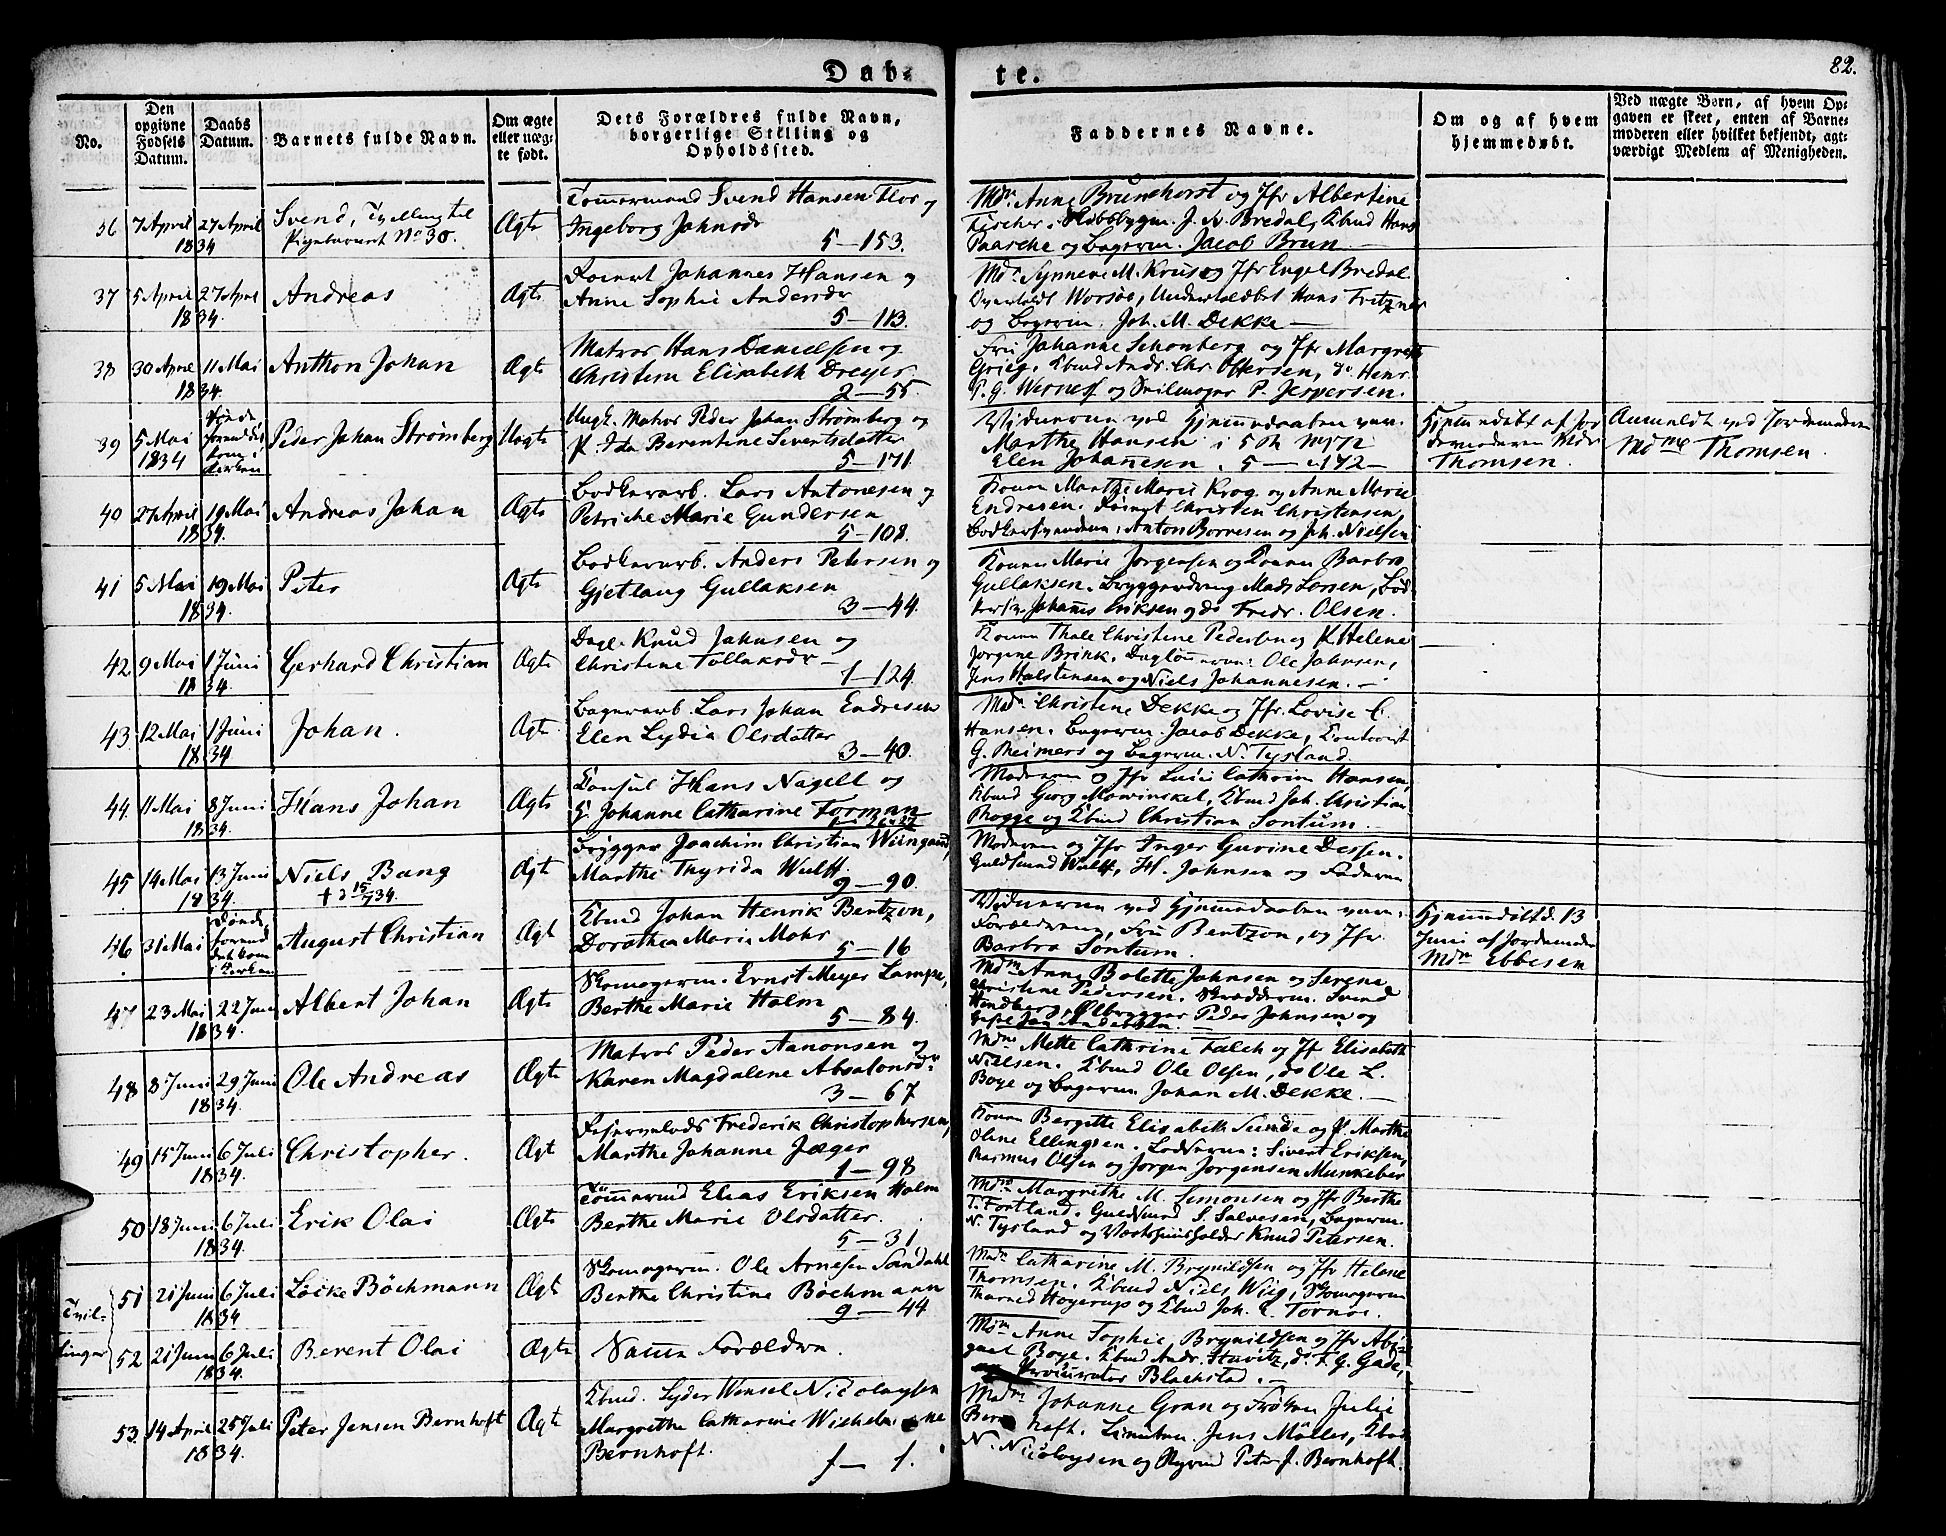 Dab-
te.
82.
No.
Den opgivne Fødsels Datum.
Daabs Datum.
Barnets fulde Navn.
Om ægte eller uægte født.
Dets Forældres fulde Navn, borgerlige Stilling og Opholdssted.
Faddernes Navne.
Om og af hvem hjemmedøbt.
Ved uægte Børn, af hvem Opgaven er skeet, enten af Barnemoderen eller hvilket bekjendt, agtværdigt Medlem af Menigheden.
36 7 April 27 April Svend, Tvilling til Ægte Tømermand Svend Hansen Flor og
1834 Pigebarnet No 30. Ingeborg Johnsdr
5-153.
Mdm Anne Brunchorst og Jfr Albertine
Fischer. Skibsbygm. J. Bredal, Kbmd Hans
Paasche og Bagerm. Jacob Brun
37 5 April 27 April Andreas Ægte Johannes Hansen og
1834. Anne Sophie Andersdr
5-113.
Mdm Synneve M. Krus og Jfr Engel Bredal
Worsøe, Hans Fritzner
og Bagerm. Joh. M. Dekke
38 30 April 11 Mai Anthon Johan Ægte Matros Hans Danielsen og
1834. Christine Elisabeth Dreyer
2-55.
Fru Johanne Schonberg og Jfr Margrete
Grieg. Kbmd Andr. Chr. Ottersen, do Henr.
P. G. Werness og Seilmager P. Jespersen.
39 5 Mai Peder Johan Strømberg Uægte Ungk. Matros Peder Johan Strømberg og
1834 P. Ida Berentine Sivertsdatter
5-171.
Vidnerne ved Hjemmedaaben var
Marthe Hansen i 5 Rh No 172
Elen Johannesen. 5-172-
Hjemmedøbt af Jordemoderen Mdm
Thomsen.
Anmeldt ved Jordemoderen
Mdme Thomsen.
40 27 April 19 Mai Andreas Johan Ægte Bødkerarb. Lars Antonesen og
1834. Petriche Marie Gundersen
5-108.
Konen Marthe Marie Krog og Anne Marie
Endresen. Christen Christensen,
Bødkersvendene: Anton Bornesen og Joh. Nielsen
41 5 Mai 19 Mai Peter Ægte Bødkerarb. Anders Petersen og
1834. Gjetlaug Gullaksen
3-44.
Konen Marie Jørgensen og Konen Barbro
Gullaksen. Bryggerdreng Mads Larsen, Bød-
Johannes Eriksen og do Fredr. Olsen.
42 9 Mai 1 Juni Gerhard Christian Ægte Dagl. Knud Johnsen og
1834. Christine Tollaksdr
1-124.
Konen Thale Christine Pedersen og P. Helene
Jørgine Brink. Dagløn: Ole Johnsen,
Jens Halstensen og Niels Johannesen.
43 12 Mai 1 Juni Johan. Ægte Bagerarb. Lars Johan Endresen
1834 Elen Lydia Olsdatter
3-40.
Mdm Christine Dekke og Jfr Lovise C.
Hansen. Bagerm. Jacob Dekke, Contorist
G. Reimers og Bagerm. N. Tysland
44 11 Mai 8 Juni Hans Johan Ægte Consul Hans Nagell og
1834. Johanne Catharine Forman
Moderen og Jfr Cathrine Hansen,
Kbmd Georg Mowinckel, Kbmd Joh. Christian
Rogge og Kbmd Christian Sontum.
45 14 Mai 13 Juni Niels Bang Ægte Brygger Joachim Christian Wiingaard,
1834. † d 15/7 34. Marthe Thyrida Wulff.
9-90.
Moderen og Jfr Inger Gurine Dessen.
Guldsmed Wulff, H. Johnsen og Faderen
46 31 Mai August Christian Ægt Kbmd Johan Henrik Bentzon,
Dorothea Marie Mohr
5-16
Vidnerne ved Hjemmedaaben vare:
Forældrene, Fru Bentzon, og Jfr.
Barbra Sontum.
Hjemmedøbt d. 13
Juni af Jordemoder
Mdm Ebbesen
47 23 Mai 22 Juni Albert Johan Ægte Skomagerm. Ernst Meyer Lampe,
1834. Berthe Marie Holm
5-84.
Mdm Anne Bolette Johnsen og Serene
Christine Pedersen. Skrædderm. Svend
Hindberg, Ølbrygger Peder Johnsen og
48 8 Juni 29 Juni Ole Andreas Ægte Matros Peder Aanonsen og
1834. Karen Magdalene Absalonsdr
3-67
Mdme Mette Cathrine Falch og Jf Elisabeth
Nielsen. Kbmd Ole Olsen, do Ole L.
Boye og Bagerm Johan M. Dekke.
49 15 Juni 6 Juli Christopher. Ægt Frederik Christophersen,
1834. Marthe Johanne Jæger
1-98
Konen Bergitte Elisabeth Sunde og P. Marthe
Oline Ellingsen. Sivert Eriksen,
Rasmus Olsen og Jørgen Jørgensen Munkebø
50 18 Juni 6 Juli Erik Olai Ægte Tømmermd Elias Eriksen Holm
1834. Berthe Marie Olsdatter.
5-31.
Mdm Margrethe M. Simonsen og Jfr Berthe
T. Fortland. Guldsmed S. Salvesen, Bagerm
N. Tysland og Værtshuusholder Knud Petersen.
Tvil-
linger
51 21 Juni 6 Juli Løcke Böchmann Ægte Skomagerm. Ole Arnesen Sandahl
1834 Berthe Christine Böchmann
9-44
Mdm Catharine M. Brynildsen og Jfr Helene
Thomsen. Kbmd Niels Wiig, Skomagerm
Høyerup og Kbmd Joh. C. Tornøe.
52 21 Juni 6 Juli Berent Olai Ægte Samme Forældre.
1834.
Mdm Anne Sophie Brynildsen og Jfr
Boye. Kbmd Andr. Hurvitz, do F. G. Gade,
og Procurator Blackstad.
53 14 April 25 Juli Peter Jensen Bernhoft Ægte Kbmd. Lyder Wensel Nicolaysen
1834. Margrethe Catharine Wilhelmine
Bernhoft.
1-1.
Madm Johanne Gran og Frøken Julie
Bernhoft. Jens Möller, Kbmd
N. Nicolaysen og Peter J. Bernhoft.